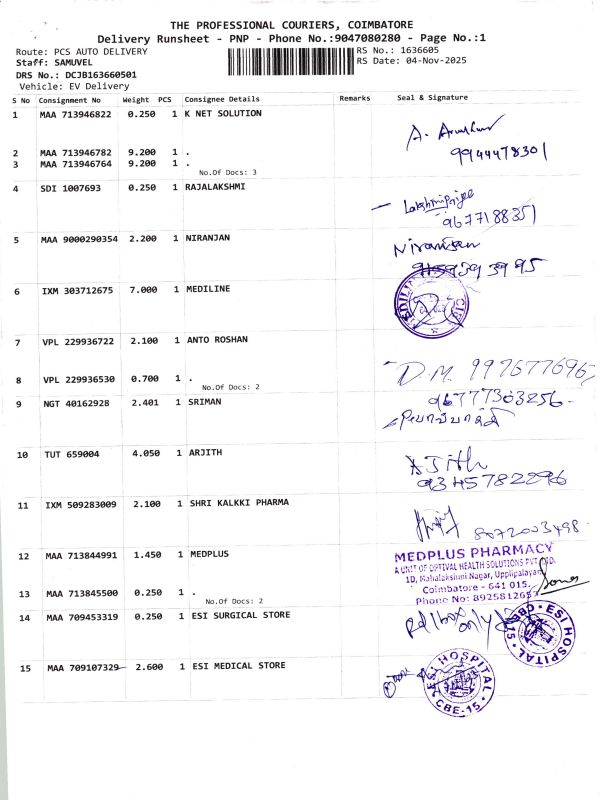 THE PROFESSIONAL COURIERS, COIMBATORE
Delivery Runsheet - PNP - Phone No.:9047080280 - Page No.:1
Route: PCS AUTO DELIVERY
Staff: SAMUVEL
DRS No.: DCJB163660501
Vehicle: EV Delivery
RS No.: 1636605
RS Date: 04-Nov-2025
S No Consignment No Weight PCS Consignee Details Remarks Seal & Signature
1 MAA 713946822 0.250 1 K NET SOLUTION
9944478301
2 MAA 713946782 9.200 1 .
3 MAA 713946764 9.200 1 .
No.Of Docs: 3
4 SDI 1007693 0.250 1 RAJALAKSHMI
9677188351
5 MAA 9000290354 2.200 1 NIRANJAN
Niranjan
6 IXM 303712675 7.000 1 MEDILINE
7 VPL 229936722 2.100 1 ANTO ROSHAN
D.M. 9976776967
8 VPL 229936530 0.700 1 .
No.Of Docs: 2
9 NGT 40162928 2.401 1 SRIMAN
9677303256
10 TUT 659004 4.050 1 ARJITH
AJith
9345782296
11 IXM 509283009 2.100 1 SHRI KALKKI PHARMA
8072003498
12 MAA 713844991 1.450 1 MEDPLUS
MEDPLUS PHARMACY
A UNIT OF OPTIVAL HEALTH SOLUTIONS PVT LTD.
1D, Mahalakshmi Nagar, Upplipalayam
Coimbatore - 641 015.
Phone No: 8925812657
13 MAA 713845500 0.250 1 .
No.Of Docs: 2
14 MAA 709453319 0.250 1 ESI SURGICAL STORE
only
ESI HOSPITAL
CBE-15
15 MAA 709107329 2.600 1 ESI MEDICAL STORE
ESI HOSPITAL
CBE-15